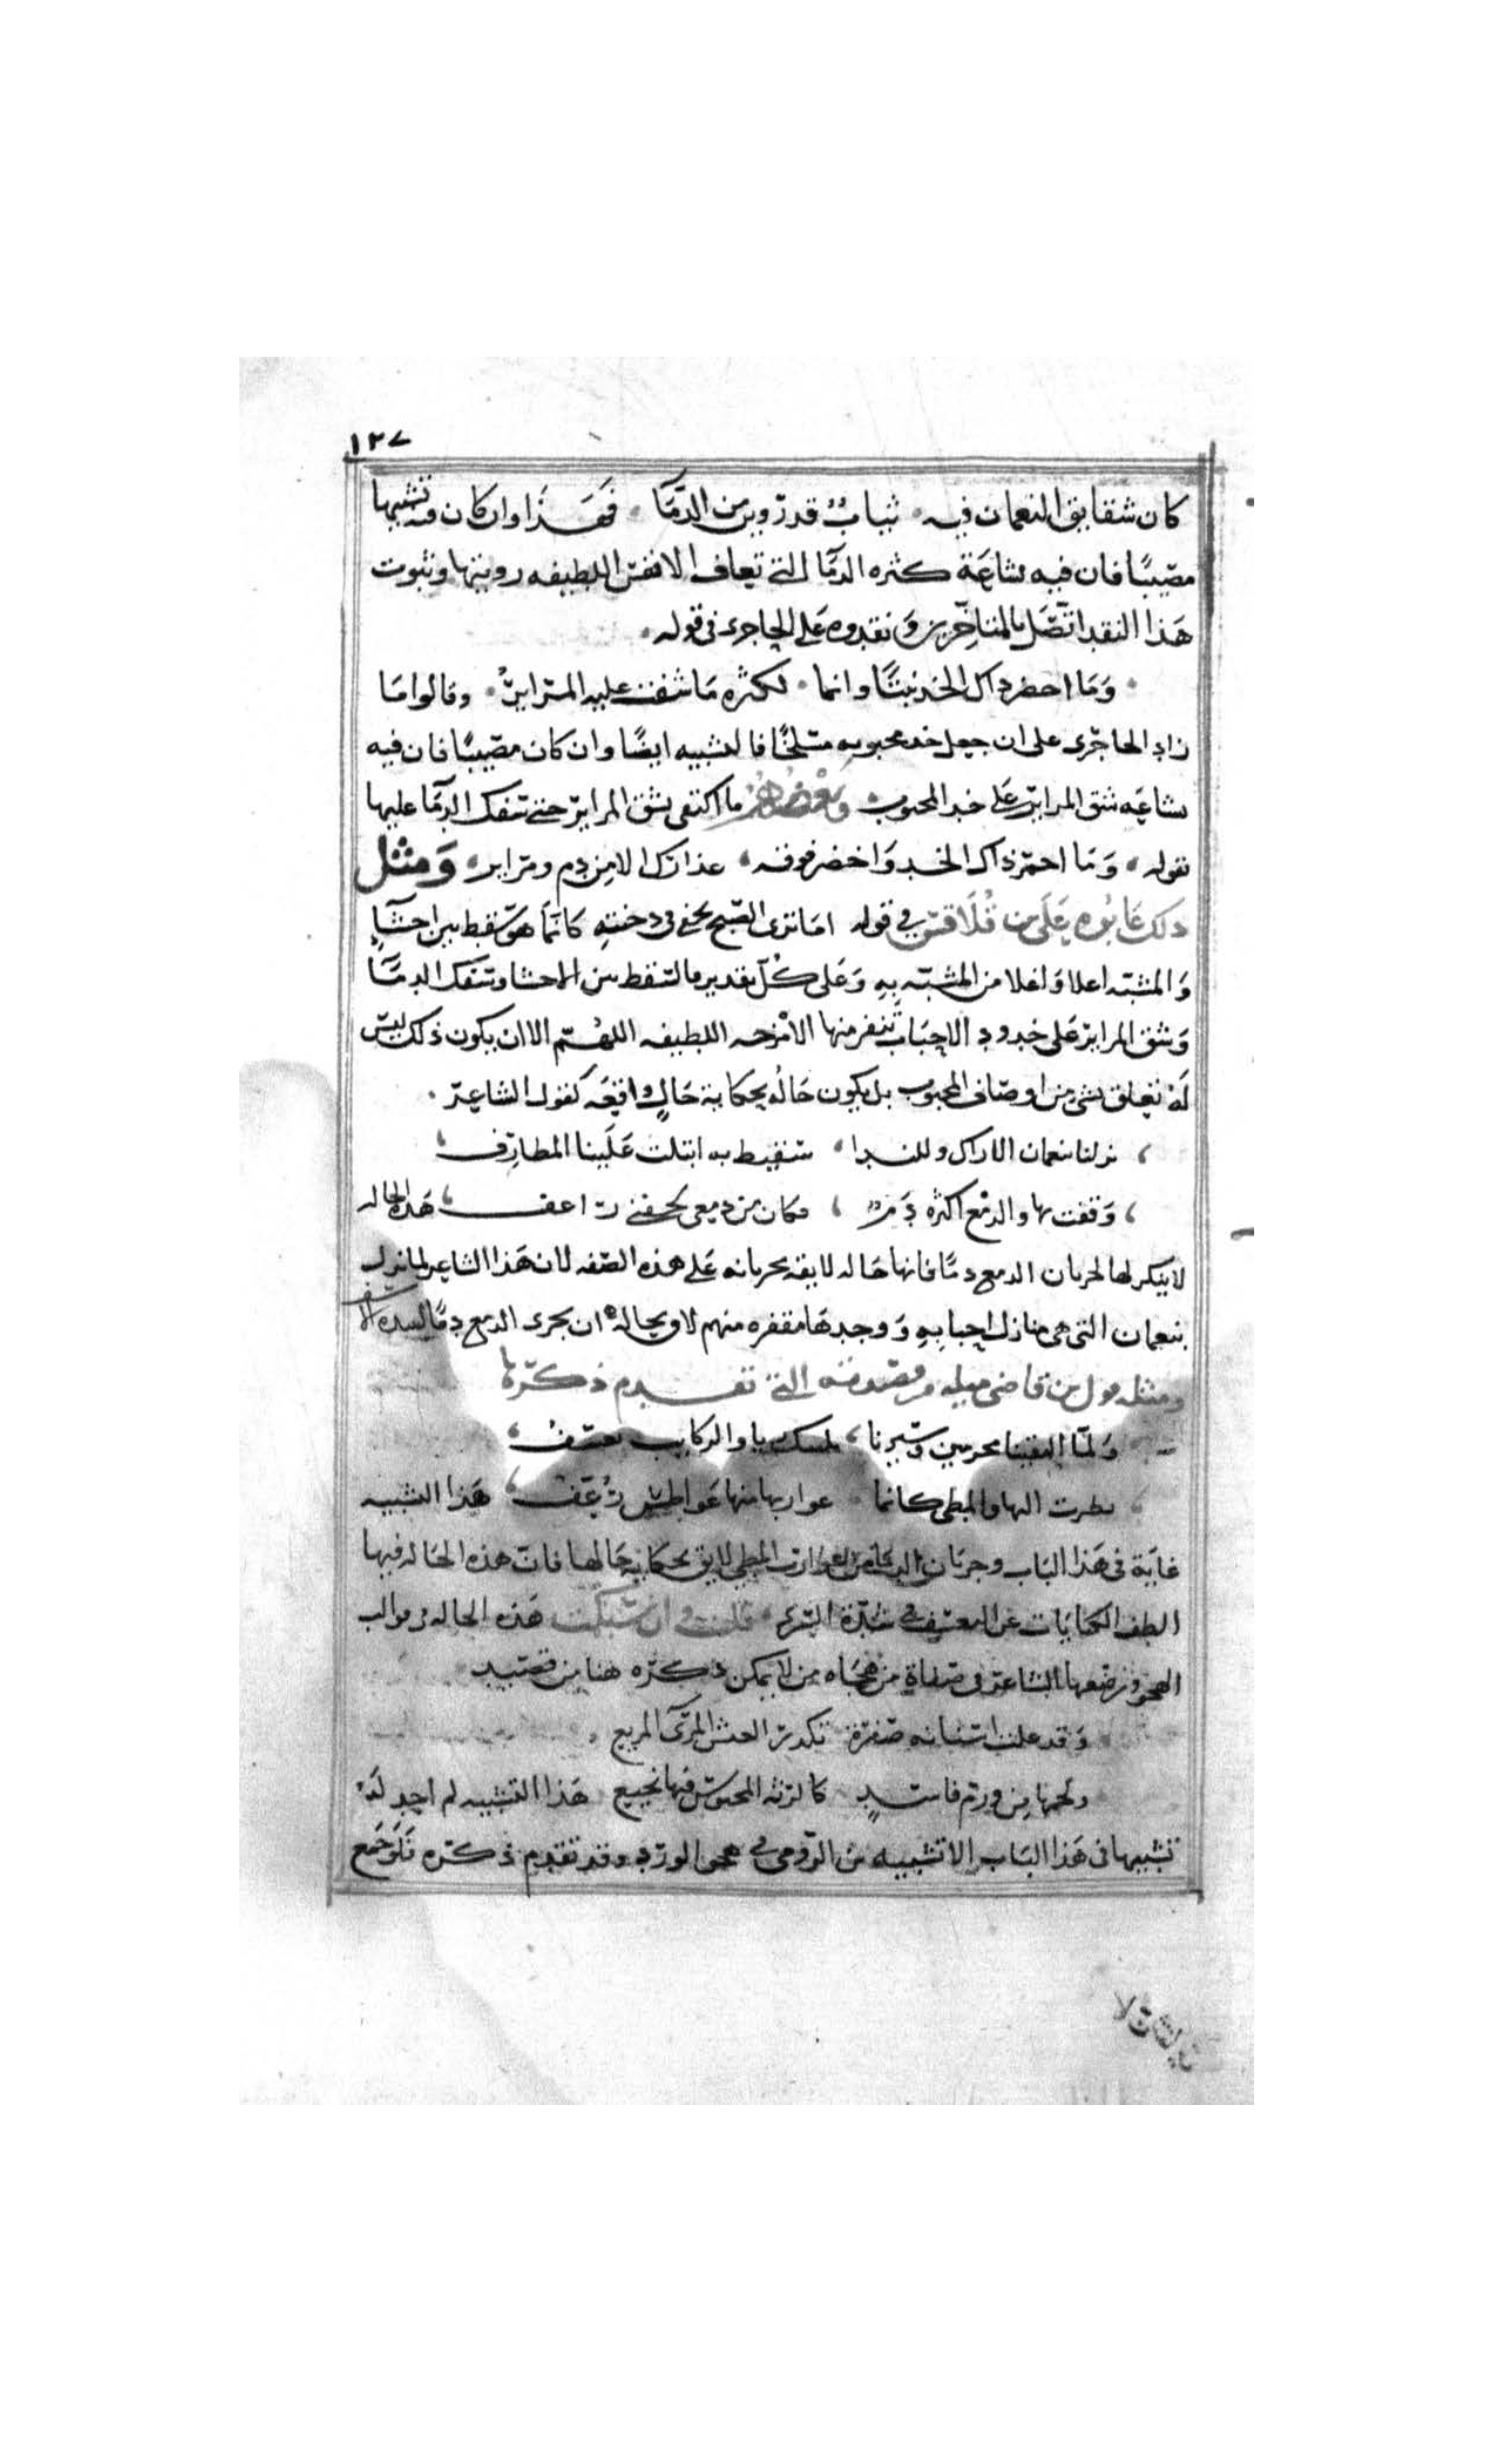 ١٢٧
كان شقايق النعمان فيه ٠ ثيابٌ قد روين من الدمَا ٠ فهَذا وان كان فيه تشبيها
مصيبًا فان فيه بشاعَة كثره الدمَا التي تعاف الانفس اللطيفه رويتها وثبوت
هَذا النقد اتصَل بالمتاخرين وَنقدوه عَلى الحاجرى فى قوله ٠
٠ وَمَا اخضر ذاك الخد نبتًا وانما ٠ لكثره مَا شقت عليه المرايرُ ٠ وقالوا مَا
زاد الحاجرى على ان جعل خد محبوبه مسلخًا فالتشبيه ايضًا وان كان مصيبًا فان فيه
بشاعَه شق المراير عَلى خد المحبوب وَبَعْضُهُمْ ما اكتفى بشق المراير حتى سَفك الدمَا عليها
بقوله ٠ وَمَا احمر ذاك الخد وَاخضر فوقه ٠ عذارك الا من دم ومراير ٠ وَمثل
ذلك عَابُوه عَلَى بن قُلَاقس في قوله امَا ترى الصبح يخفى فى دجنتهِ كَانمَا هوَ سقط بين احشآءٍ
وَالمشبه اعلا وَاغلا من المشبّه بهِ وَعَلى كُل تقدير فالسقط بين الاحشا وسَفك الدمَا
وَشق المراير عَلى خدود الاحبَاب تنفر منها الامْزجه اللطيفه اللهُمّ الا ان يكون ذلك ليسَ
لَهُ تعلق بشى من اوصَاف المحبوب بل يكون حَالُه يحكَاية حَالٍ وَاقعَه كقول الشاعِر ٠
، نزلنا بنعمان الاراك وللندا ٠ سَقيط به ابتلت عَلَينا المطارف ،
، وَقفت بها والدمْع اكثره دَمٌ ، وكان من دمعى بجفنى راعف ، هَذه الحاله
لا ينكر لها لجريان الدمع دمًا فانها حَاله لايقه بجريانه عَلى هذه الصّفه لان هَذا الشاعِر لما نزل
بنعمان التى هى منازل احبابهِ وَوجدهَا مقفره منهم لاق بحاله ان يجرى الدمع دمًا لشده الاسف
ومثله قول بن قاضى ميله من قصيدته التي تقدم ذكرها
وَلمّا التقينا محرمين وَسَيرنا ، بلبيك يا والركايب تعسف ،
، نظرت اليها والمطى كانما ٠ غواربها منها عَواطس رُعَّفُ ، هَذا التشبيه
غايَة فى هَذا البَاب وجريَان الدمَا من غوارب المطى لايق بحكاية حَالها فان هذه الحَاله فيها
الطف الكنايَات عن التعسيف في شدّة السّرى ٠ قلت وان سُبكت هَذه الحاله فى قوالب
الهجو ورصّعها الشاعر فى صفات من هجَاه من لا يمكن ذكره هنا من قصيد
وَقد علت اسنانه صفرة تكدر العيش المرى المريع ٠
ولحمها من ورم فاسدٍ كالرئه المحبوس فيها نجيع هَذا التشبيه لم اجد لَهُ
تشبيها فى هَذا البَاب الا تشبيه بن الرومى في هجو الورد وقد تقدم ذكره فَلَو جَمع